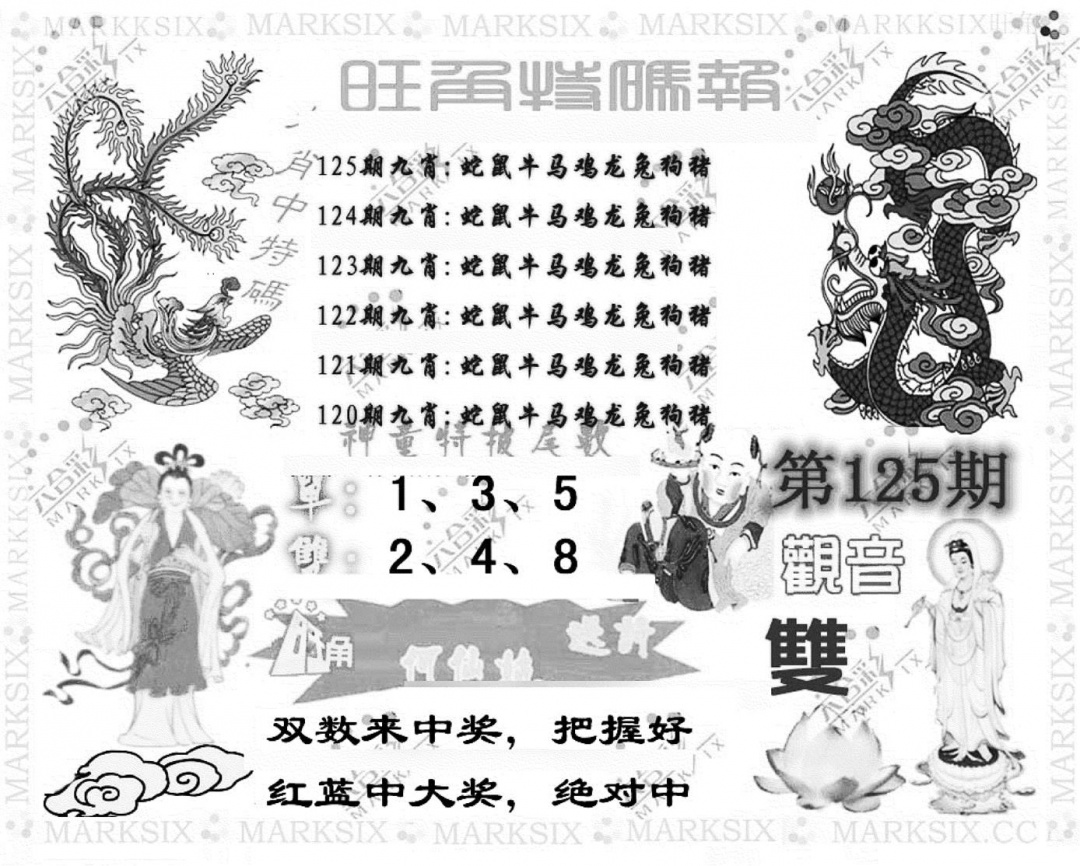 MARKSIX MARKSIX MARKSIX MARKSIX MARKKSIX
旺角特碼報
肖中特碼
125期九肖:蛇鼠牛马鸡龙兔狗猪
124期九肖:蛇鼠牛马鸡龙兔狗猪
123期九肖:蛇鼠牛马鸡龙兔狗猪
122期九肖:蛇鼠牛马鸡龙兔狗猪
121期九肖:蛇鼠牛马鸡龙兔狗猪
120期九肖:蛇鼠牛马鸡龙兔狗猪
神童特报尾數
單: 1、3、5
雙: 2、4、8
第125期
觀音
雙
何仙姑
双数来中奖，把握好
红蓝中大奖，绝对中
MARKSIX MARKSIX MARKSIX MARKSIX MARKSIX.CC